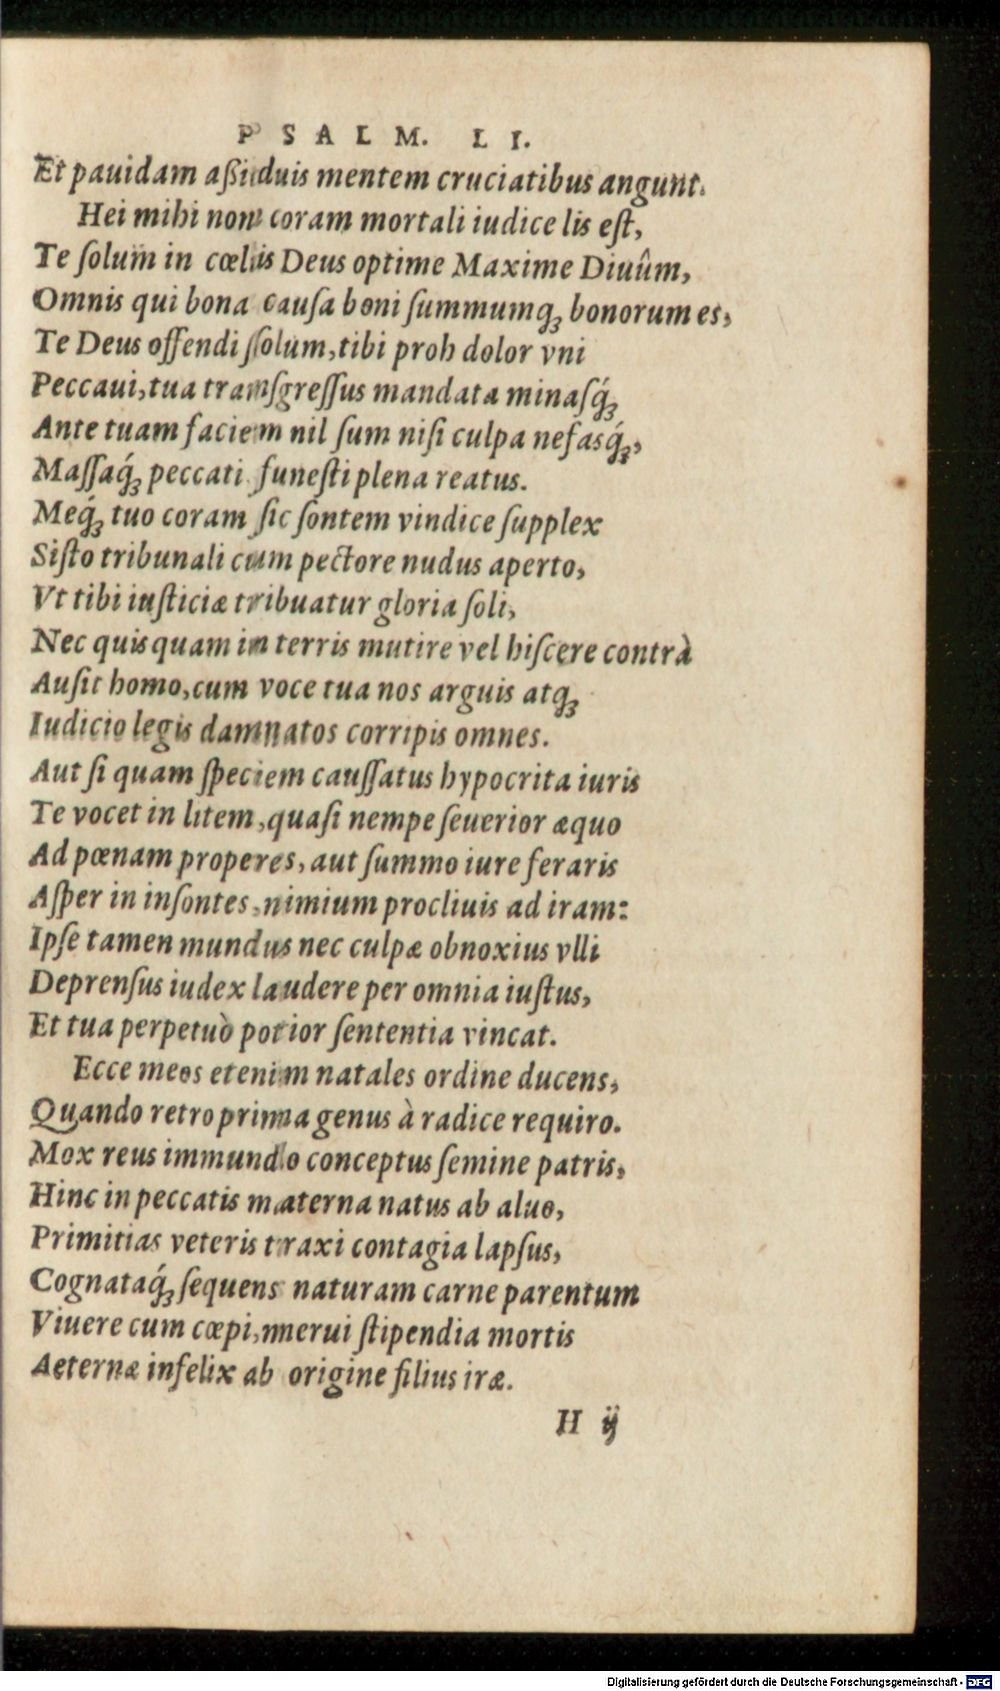 PSALM. LI.
Et pauidam aßiduis mentem cruciatibus angunt.
Hei mihi non coram mortali iudice lis eſt,
Te ſolum in cœlis Deus optime Maxime Diuûm,
Omnis qui bona cauſa boni ſummumqꝫ bonorum es,
Te Deus offendi ſolum, tibi proh dolor vni
Peccaui, tua tranſgreſſus mandata minaſq́ꝫ
Ante tuam faciem nil ſum niſi culpa nefasq́ꝫ,
Maſſaq́ꝫ peccati funeſti plena reatus.
Meq́ꝫ tuo coram ſic ſontem vindice ſupplex
Siſto tribunali cum pectore nudus aperto,
Vt tibi iuſticiæ tribuatur gloria ſoli,
Nec quisquam in terris mutire vel hiſcere contrà
Auſit homo, cum voce tua nos arguis atqꝫ
Iudicio legis damnatos corripis omnes.
Aut ſi quam ſpeciem cauſſatus hypocrita iuris
Te vocet in litem, quaſi nempe ſeuerior æquo
Ad pœnam properes, aut ſummo iure feraris
Aſper in inſontes, nimium procliuis ad iram:
Ipſe tamen mundus nec culpæ obnoxius vlli
Deprenſus iudex laudere per omnia iuſtus,
Et tua perpetuò potior ſententia vincat.
Ecce meos etenim natales ordine ducens,
Quando retro prima genus à radice requiro.
Mox reus immundo conceptus ſemine patris,
Hinc in peccatis materna natus ab aluo,
Primitias veteris traxi contagia lapſus,
Cognataq́ꝫ ſequens naturam carne parentum
Viuere cum cœpi, merui ſtipendia mortis
Aeternæ infelix ab origine filius iræ.
H ij
Digitalisierung gefördert durch die Deutsche Forschungsgemeinschaft - DFG